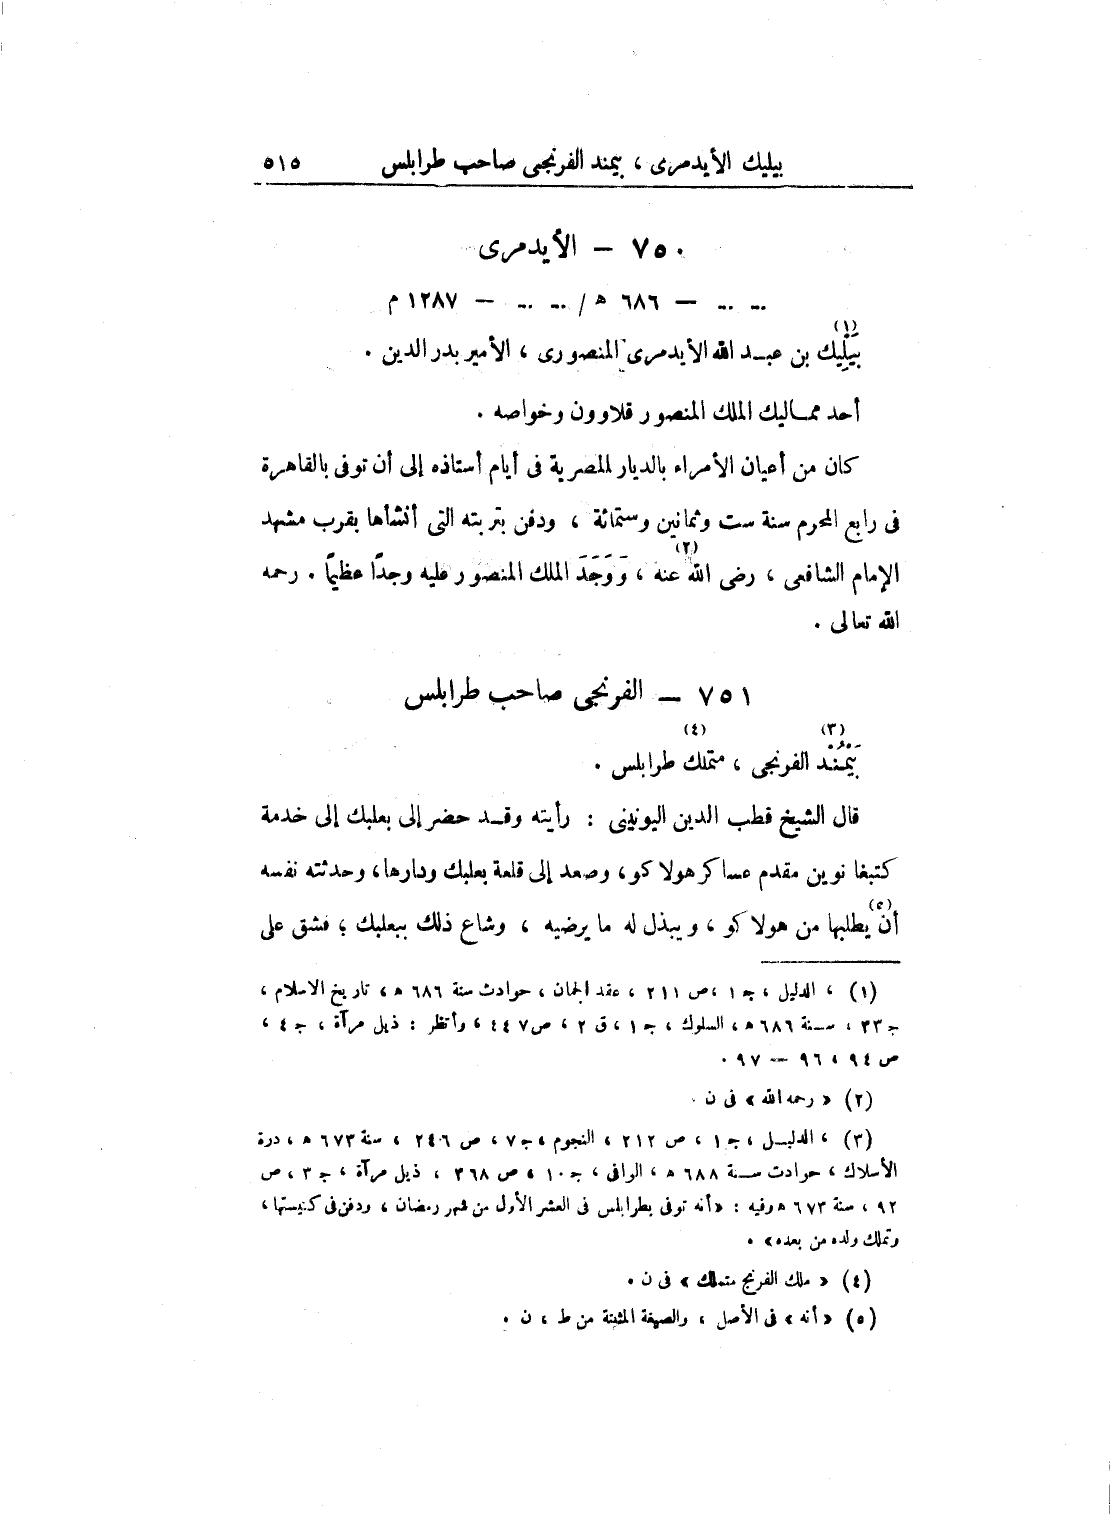 بيليك الأيدمرى ، بيمند الفرنجى صاحب طرابلس ٥١٥
٧٥٠ — الأيدمرى
.. .. — ٦٨٦ هـ / .. .. — ١٢٨٧ م
(١)
بَيْلِيك بن عبد الله الأيدمرى المنصورى ، الأمير بدر الدين .
أحد مماليك الملك المنصور قلاوون وخواصه .
كان من أعيان الأمراء بالديار المصرية فى أيام أستاذه إلى أن توفى بالقاهرة
فى رابع المحرم سنة ست وثمانين وستمائة ، ودفن بتربته التى أنشأها بقرب مشهد
(٢)
الإمام الشافعى ، رضى الله عنه ، وَوَجَدَ الملك المنصور عليه وجدًا عظيمًا . رحمه
الله تعالى .
٧٥١ — الفرنجى صاحب طرابلس
(٣) (٤)
بَيْمُنْد الفرنجى ، متملك طرابلس .
قال الشيخ قطب الدين اليونينى : رأيته وقد حضر إلى بعلبك إلى خدمة
كتبغا نوين مقدم عساكر هولاكو ، وصعد إلى قلعة بعلبك ودارها ، وحدثته نفسه
(٥)
أن يطلبها من هولاكو ، ويبذل له ما يرضيه ، وشاع ذلك ببعلبك ؛ فشق على
(١) ، الدليل ، جـ ١ ، ص ٢١١ ، عقد الجمان ، حوادث سنة ٦٨٦ هـ ، تاريخ الاسلام ،
جـ ٣٣ ، سنة ٦٨٦ هـ ، السلوك ، جـ ١ ، ق ٢ ، ص ٤٤٧ ، وأنظر : ذيل مرآة ، جـ ٤ ،
ص ٩٤ ، ٩٦ — ٩٧ .
(٢) « رحمه الله » فى ن .
(٣) ، الدليل ، جـ ١ ، ص ٢١٢ ، النجوم ، جـ ٧ ، ص ٢٤٦ ، سنة ٦٧٣ هـ ، درة
الأسلاك ، حوادث سنة ٦٨٨ هـ ، الوافى ، جـ ١٠ ، ص ٣٦٨ ، ذيل مرآة ، جـ ٣ ، ص
٩٢ ، سنة ٦٧٣ هـ وفيه : «أنه توفى بطرابلس فى العشر الأول من شهر رمضان ، ودفن فى كنيستها ،
وتملك ولده من بعده» .
(٤) « ملك الفرنج متملك » فى ن .
(٥) « أنه » فى الأصل ، والصيغة المثبتة من ط ، ن .